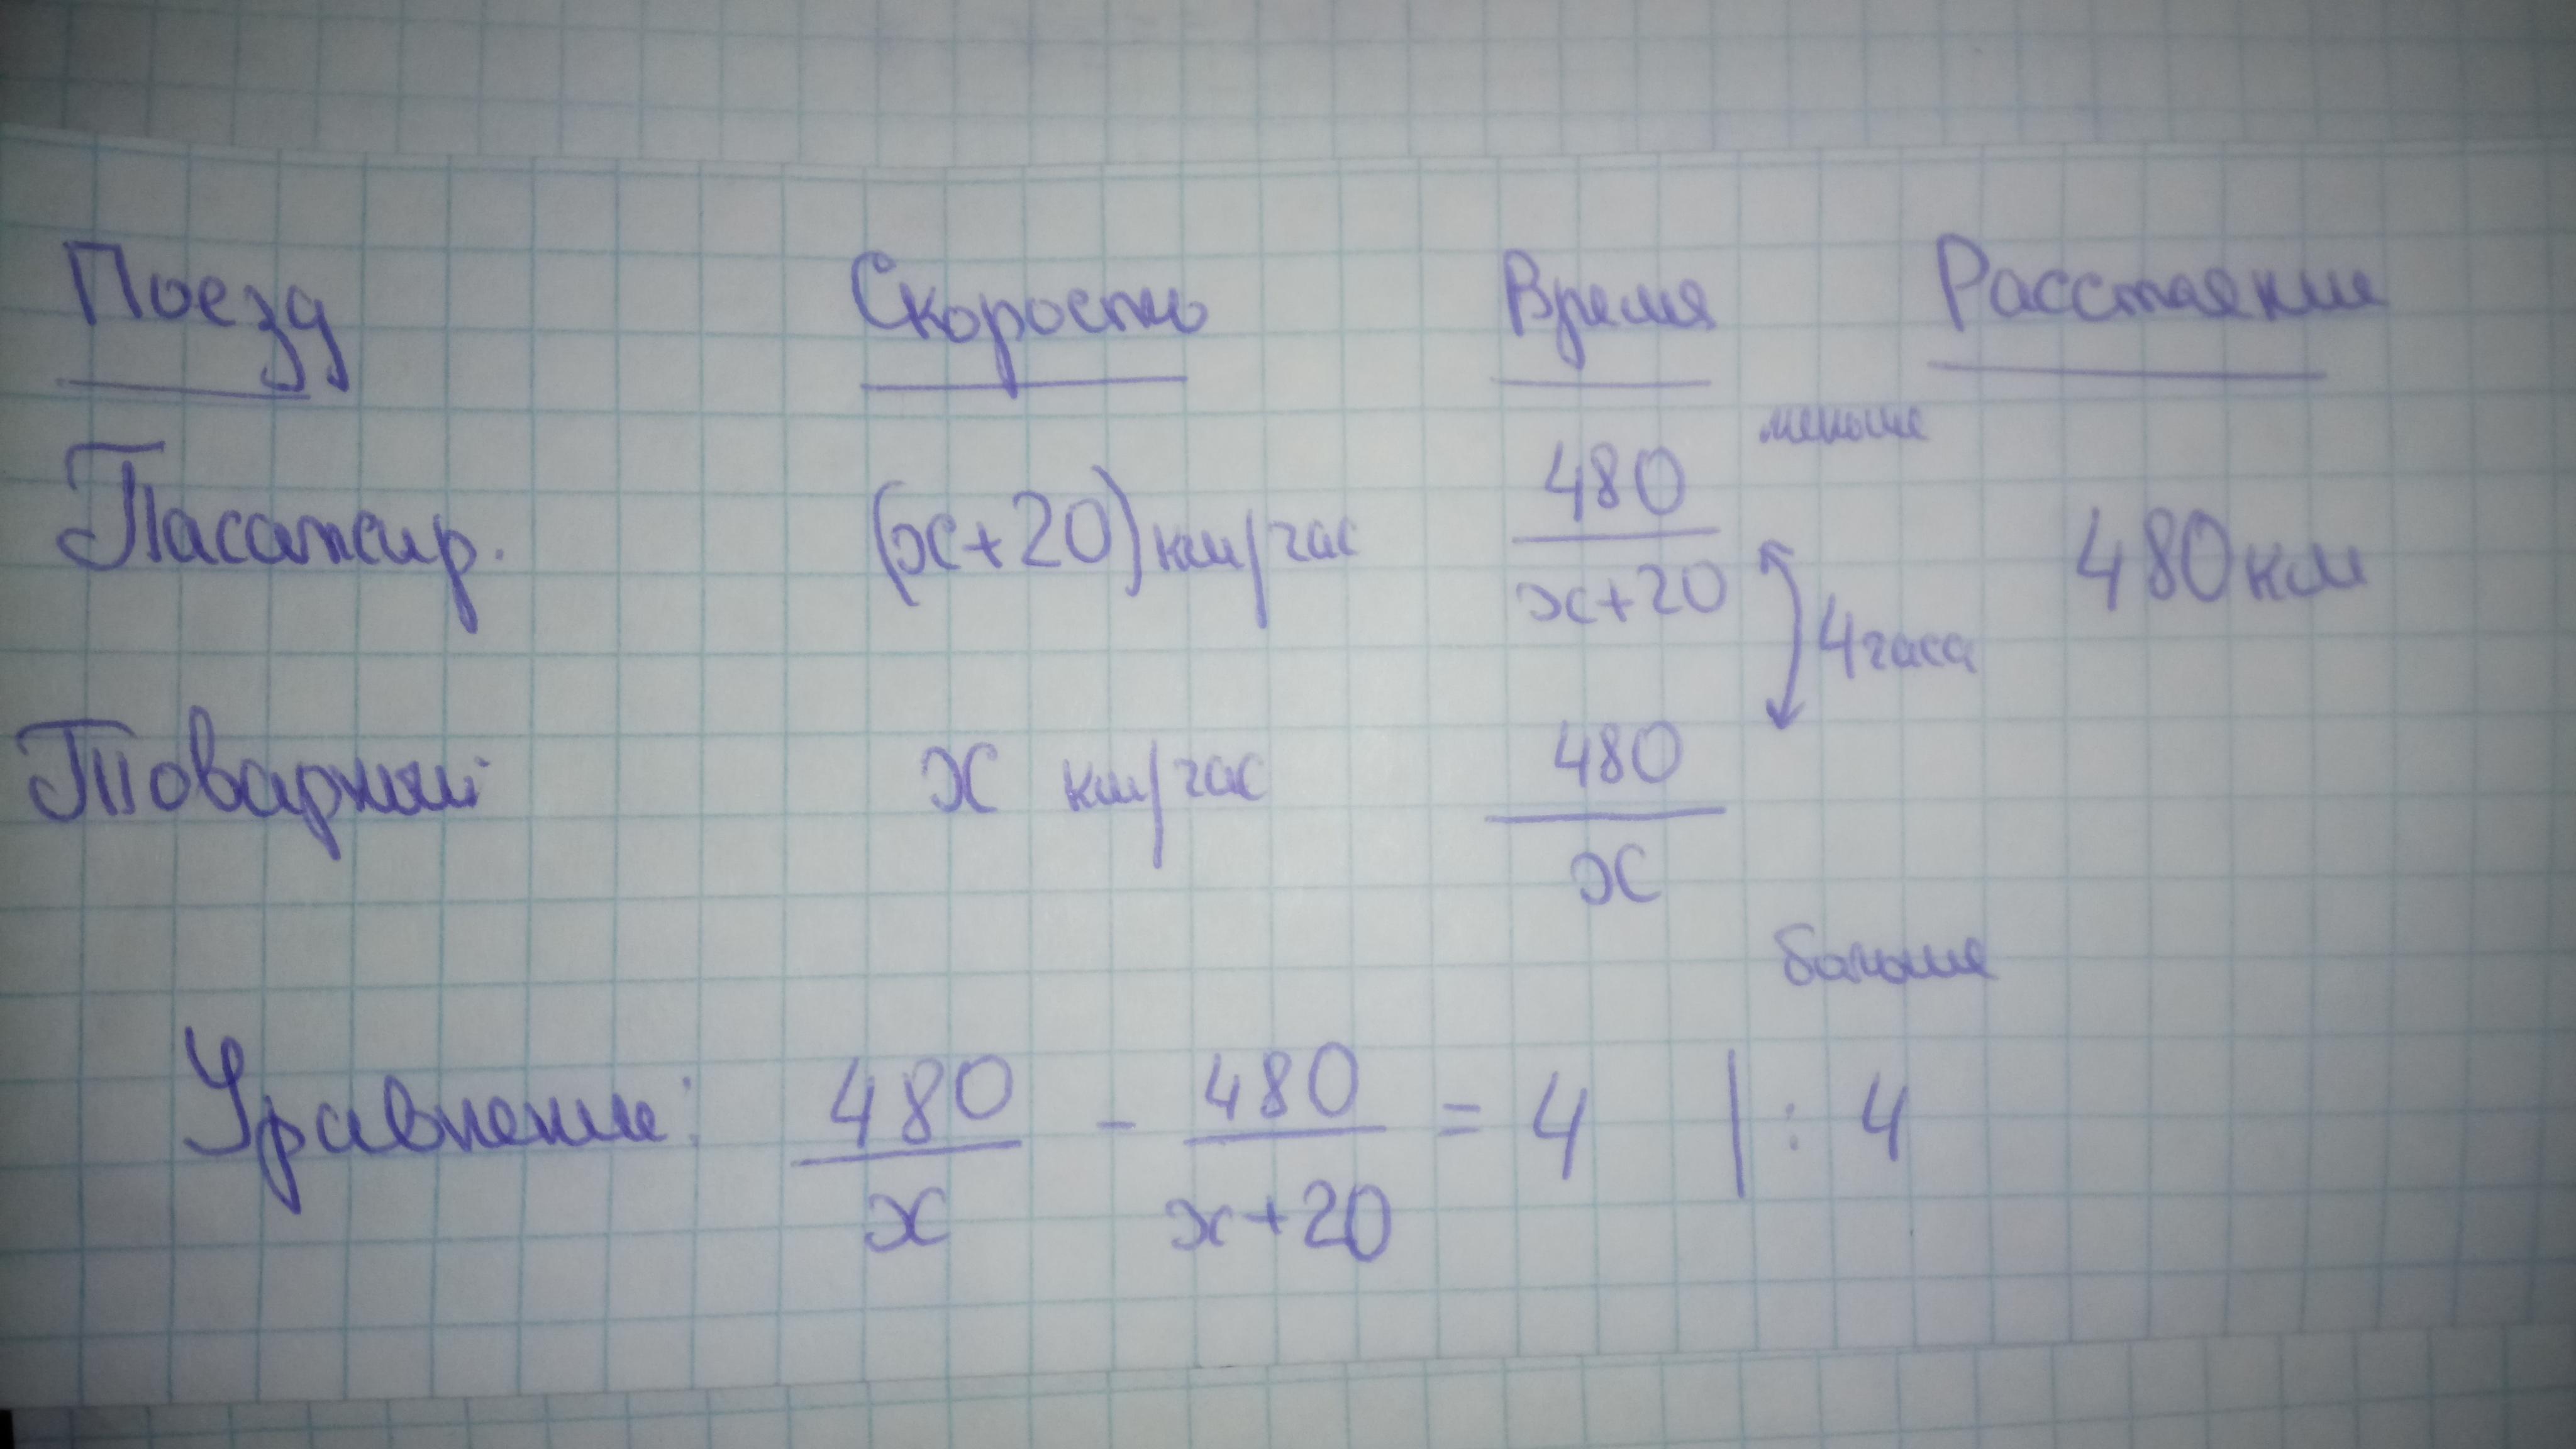 Поезд Скорость Время Расстояние
меньше
Пасажир. (x+20) км/час 480/x+20 480 км
4 часа
Товарный x км/час 480/x
больше
Уравнение: 480/x - 480/x+20 = 4 | : 4